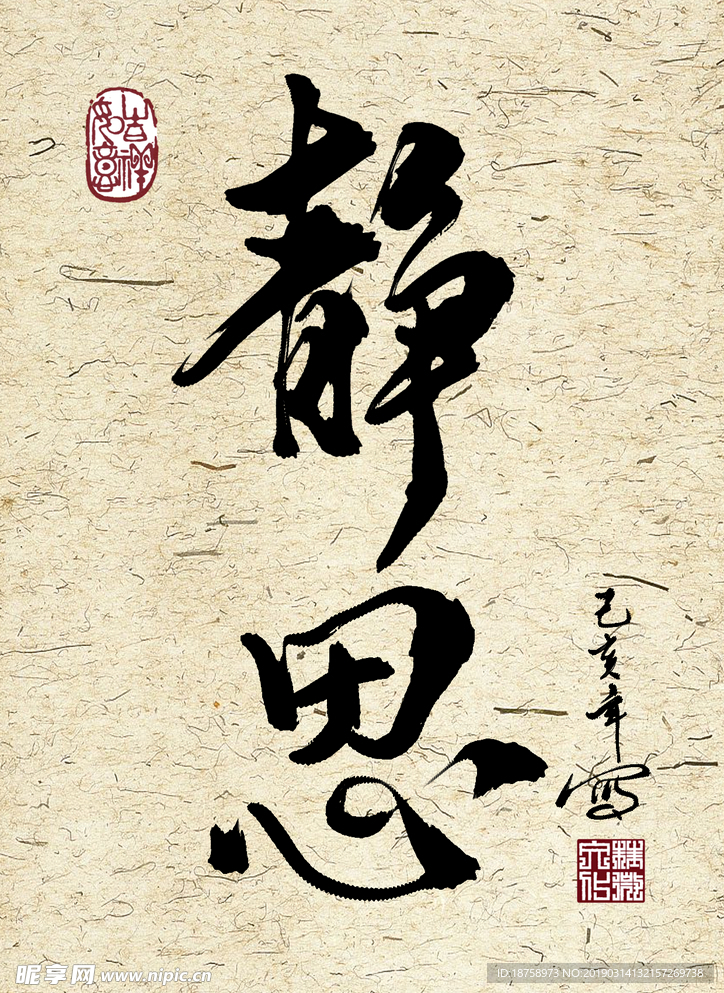 吉祥
如意
静思
己亥年写
昵享网 www.nipic.cn
ID:18758973 NO:20190314132157269738